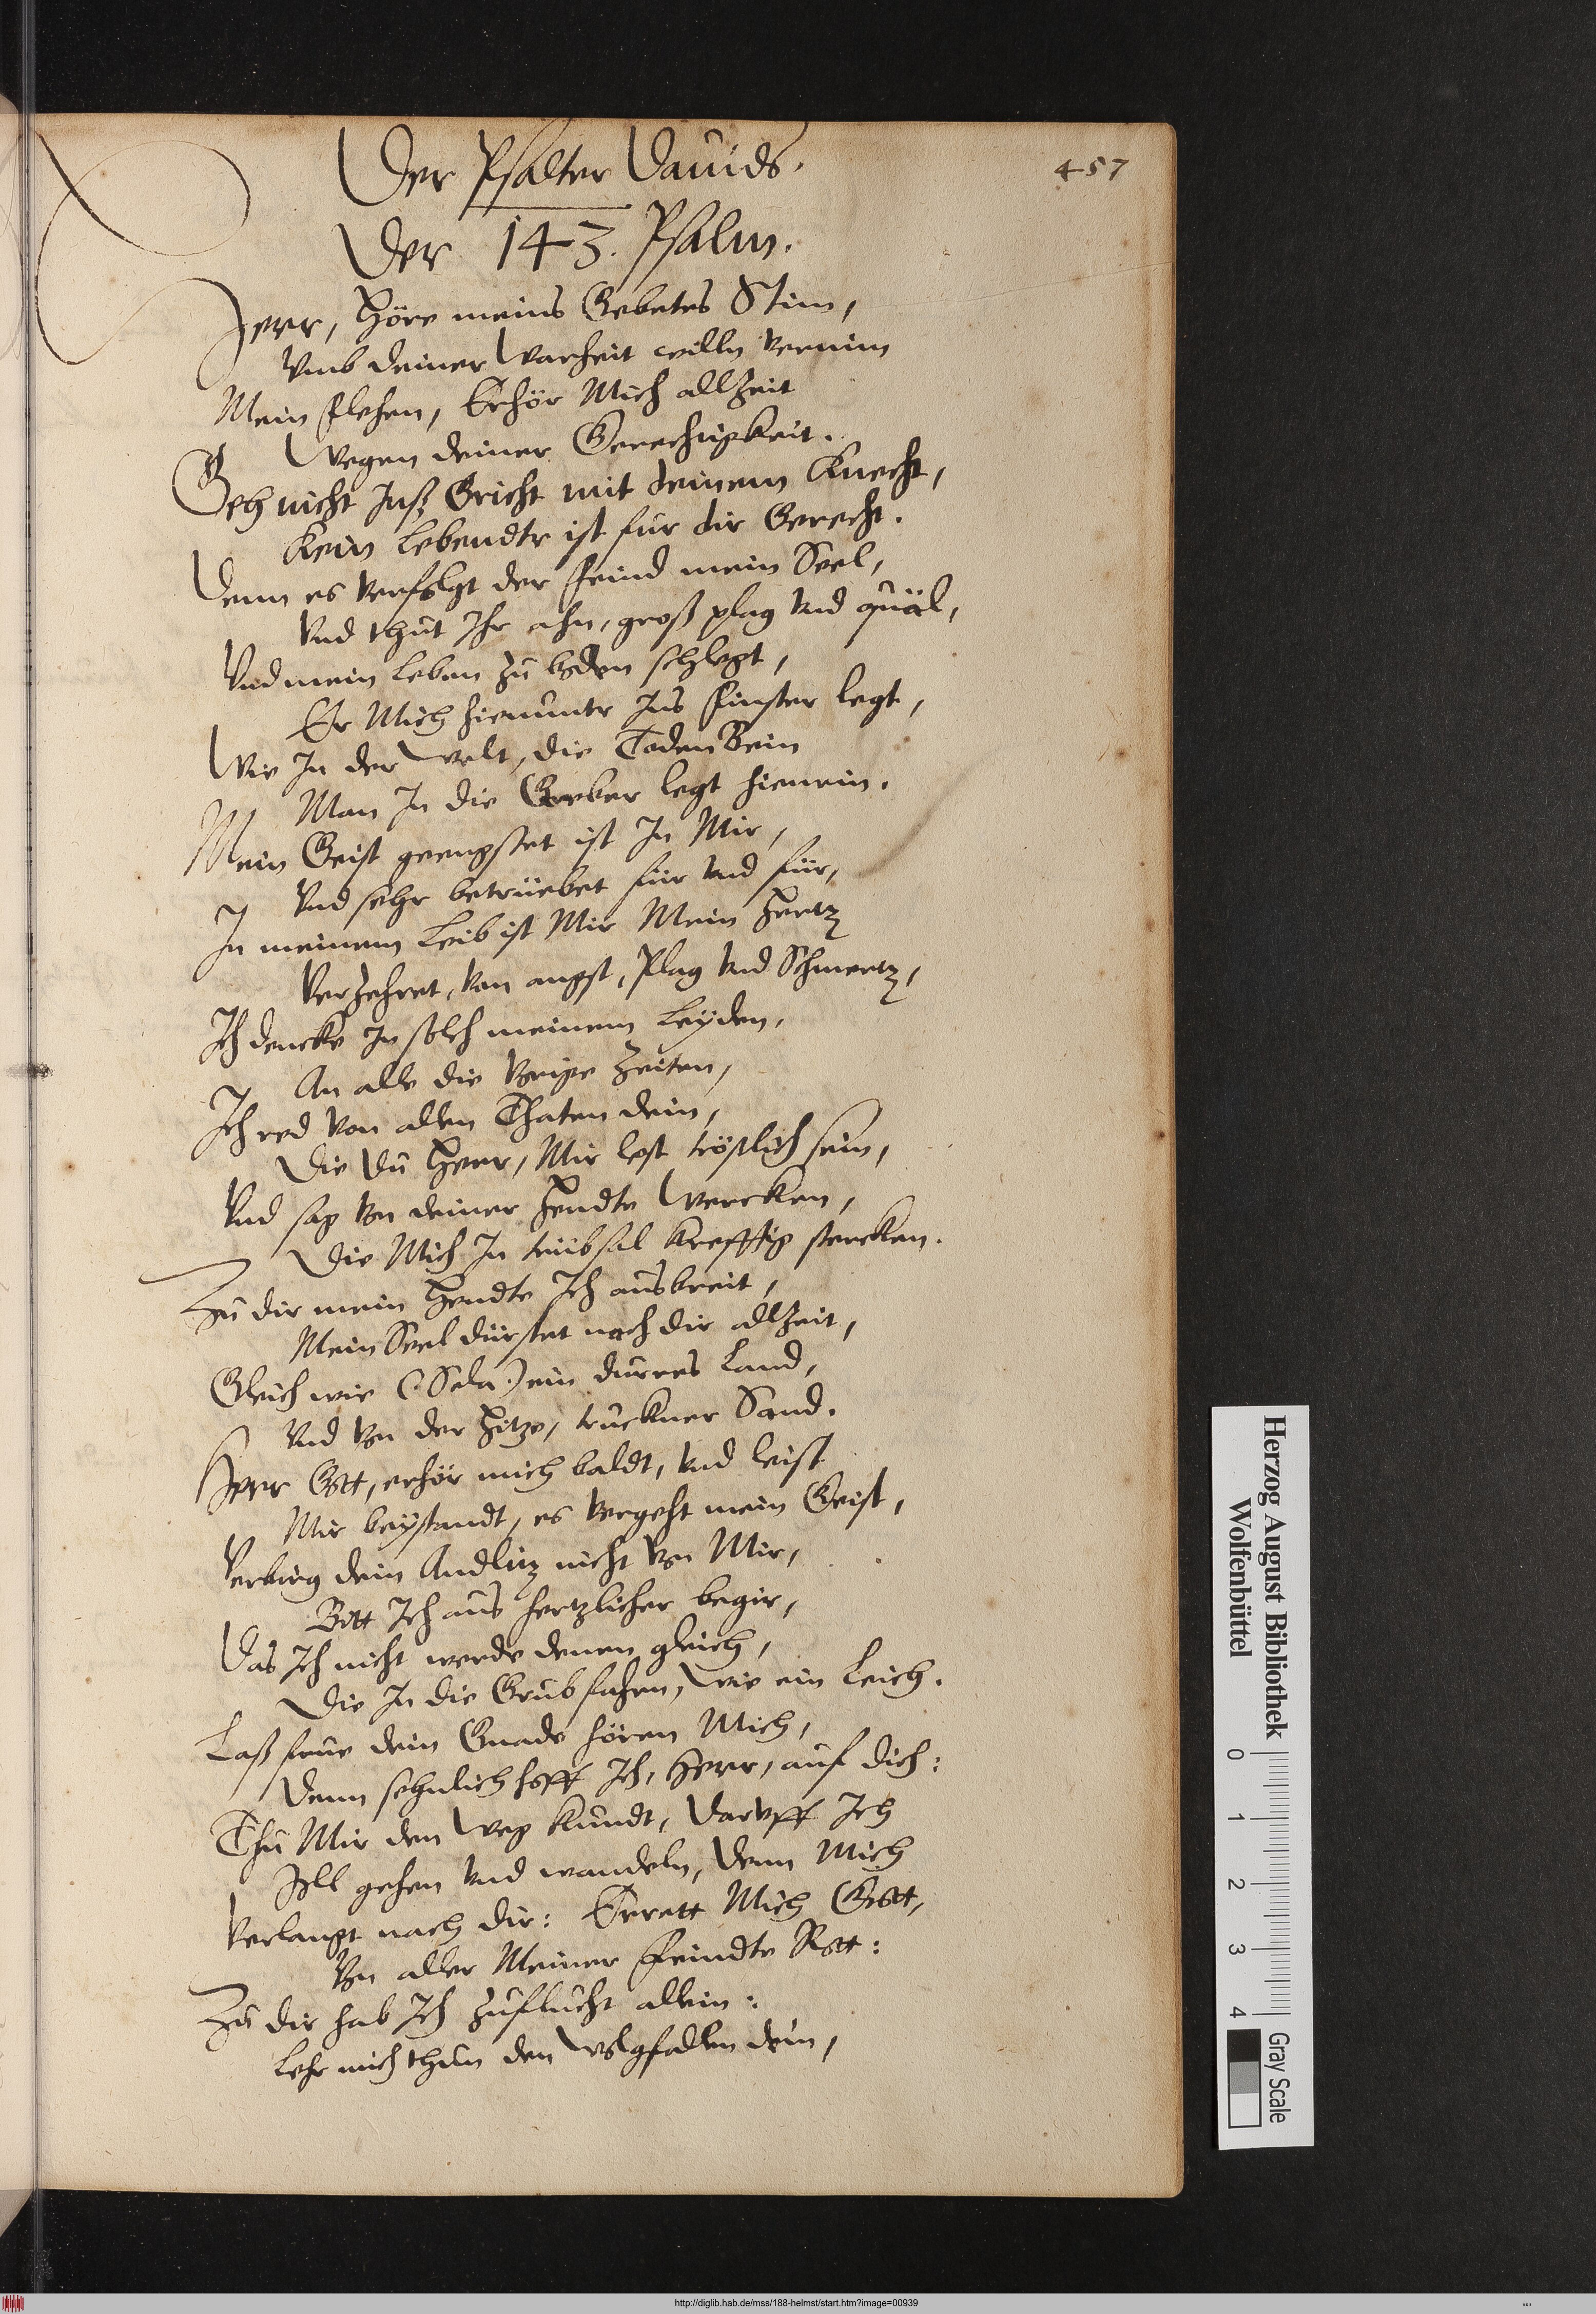 Der Psalter Dauids.
457
Der 143. Psalm.
Herr, Höre meins Gebetes Stim,
Vmb deiner Warheit willn vernim
Mein flehen, Erhör Mich allzeit
Wegen deiner Gerechtigkeit.
Geh nicht Inß Gricht mit deinem Knecht,
Kein Lebendtr ist fur dir Gerecht.
Denn es verfolgt der Feind mein Seel,
Vnd thut Ihr ahn, groß plag vnd quäl,
Vnd mein Leben zu boden schlegt,
Er Mich hienuntr Ins Finster legt,
Wie In der Welt, die TodenBein
Man In die Greber legt hienein.
Mein Geist geengstet ist In Mir,
Vnd sehr betrüebet für vnd für,
In meinem Leib ist Mir Mein Hertz
Verzehret, von angst, Plag vnd Schmertz,
Ich dencke In solch meinem Leyden,
An alle die Vorige Zeiten,
Ich red von allen Thaten dein,
Die du Herr, Mir lest tröstlich sein,
Vnd sag von deiner Hendte Wercken,
Die Mich In trübsal krefftig stercken.
Zu dir mein Hendte Ich ausbreit,
Mein Seel dürstet nach dir allzeit,
Gleich wie (Sela) ein durres Land,
Vnd von der Hitze, truckner Sand.
Herr Gott, erhör mich baldt, vnd leist
Mir beystandt, es vergeht mein Geist,
Verbirg dein Andlitz nicht von Mir,
Bitt Ich aus hertzlicher begir,
Das Ich nicht werde denen gleich,
Die In die Grub fahren, wie ein Leich.
Laß frue dein Gnade hören Mich,
Denn sehnlich hoff Ich, Herr, auf dich:
Thu Mir den Weg kundt, Darvff Ich
Soll gehen vnd wandeln, denn Mich
Verlangt nach dir: Errett Mich Gott,
Von aller Meiner Feindte Rott:
Zu dir hab Ich Zuflucht allein:
Lehr mich thun den Wolgfallen dein,
Herzog August Bibliothek
Wolfenbüttel
0 1 2 3 4
Gray Scale
http://diglib.hab.de/mss/188-helmst/start.htm?image=00939